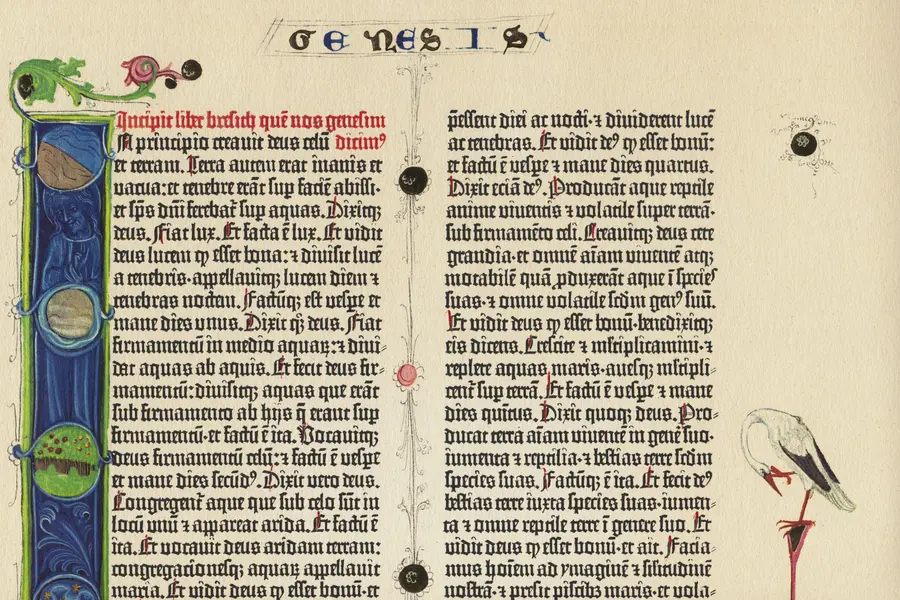 GENESIS
Incipit liber bresich quē nos genesim
IN principio creavit deus celū dicim⁹
et terram. Terra autem erat inanis et
vacua: et tenebre erāt sup faciē abissi·
et sp̄s dn̄i ferebat᷑ sup aquas. Dixitqꝫ
deus. Fiat lux. Et facta ē lux. Et vidit
deus lucem ꝙ esset bona: ⁊ divisit lucē
a tenebris·appellavitqꝫ lucem diem ⁊
tenebras noctem. Factūqꝫ est vespe et
mane dies vnus. Dixit qꝫ deus. Fiat
firmamentū in medio aquaꝝ: ⁊ divi⸗
dat aquas ab aquis. Et fecit deus fir⸗
mamentū: divisitqꝫ aquas que erāt
sub firmamento ab hijs q̄ erant sup
firmamentū·et factū ē ita. Vocavitqꝫ
deus firmamentū celū: ⁊ factū ē vespe
et mane dies secūd⁹. Dixit vero deus.
Congregent᷑ aque que sub celo sūt in
locū vnū ⁊ appareat arida. Et factū ē
ita. Et vocavit deus aridam terram:
congregacionesqꝫ aquaꝝ appellavit
maria. Et vidit deus ꝙ esset bonū·et
p̄essent diei ac nocti·⁊ dividerent lucē
ac tenebras. Et vidit de⁹ ꝙ esset bonū:
et factū ē vespe ⁊ mane dies quartus.
Dixit eciā de⁹. Producāt aque reptile
anime viventis ⁊ volatile super terrā·
sub firmamēto celi. Creavitqꝫ deus cete
grandia·et omnē aīam viventē atqꝫ
motabilē quā ꝓduxerāt aque ī species
suas·⁊ omne volatile scd̄m gen⁹ suū.
Et vidit deus ꝙ esset bonū·benedixitqꝫ
eis dicens. Crescite et ml̄tiplicamini·⁊
replete aquas maris·avesqꝫ ml̄tipli⸗
cent᷑ sup terrā. Et factū ē vespe ⁊ mane
dies quītus. Dixit quoqꝫ deus. Pro⸗
ducat terra aīam viventē in genē suo·
iumenta ⁊ reptilia·⁊ bestias terre scd̄m
species suas. Factūqꝫ ē ita. Et fecit de⁹
bestias terre iuxta species suas·iumen⸗
ta ⁊ omne reptile terre ī genere suo. Et
vidit deus ꝙ esset bonū·et ait. Facia⸗
mus hoīem ad ymaginē ⁊ silitudinē
nostrā·⁊ presit piscibꝫ maris·et vola⸗